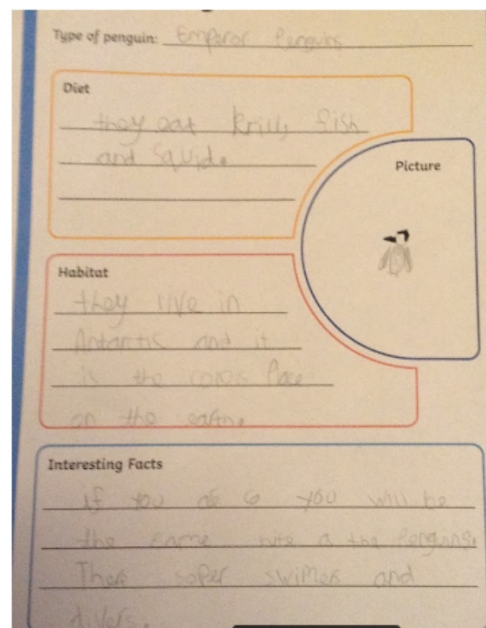 Type of penguin: Emperor Penguins
Diet
they eat krill, fish
and squid.
Picture
Habitat
they live in
Antartis and it
is the coles Place
on the earth.
Interesting Facts
if you are 6 you will be
the same hite a the Penguins.
Thers soper swimers and
divers.